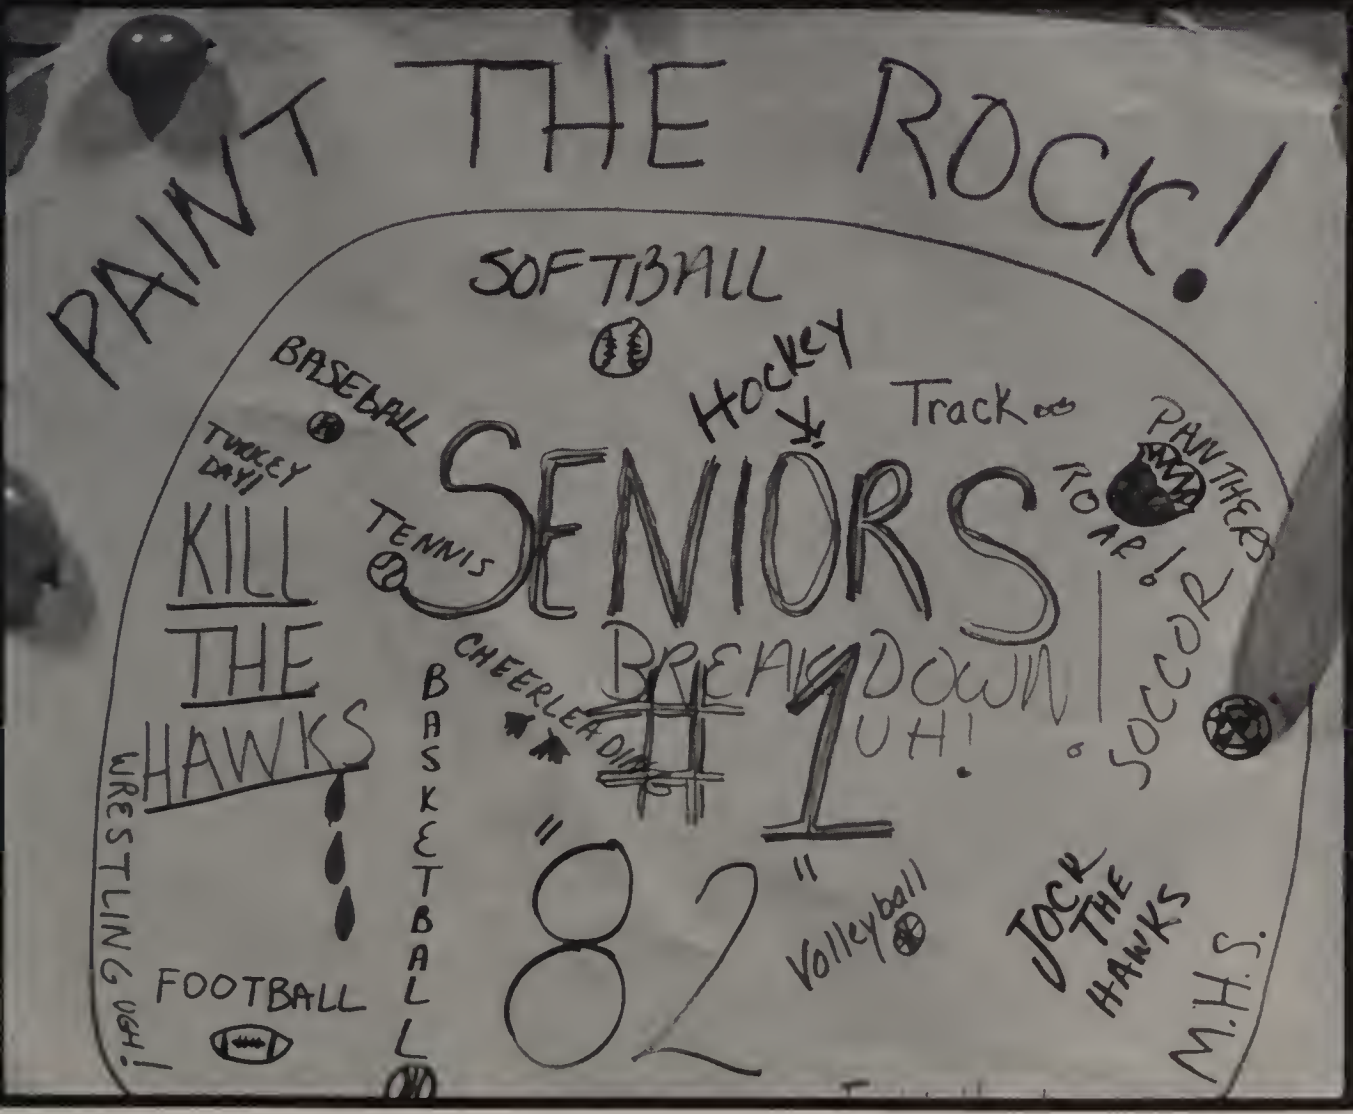 PAINT THE ROCK!
SOFTBALL
BASEBALL
Hockey
Track
PANTHERS
ROAR!
TURKEY
DAY!!
KILL
THE
HAWKS
TENNIS
SENIORS
BREAKDOWN!
UH!
#1
"82"
SOCCOR
CHEERLEADING
BASKETBALL
WRESTLING UGH!
FOOTBALL
Volleyball
JOCK
THE
HAWKS
M.H.S.